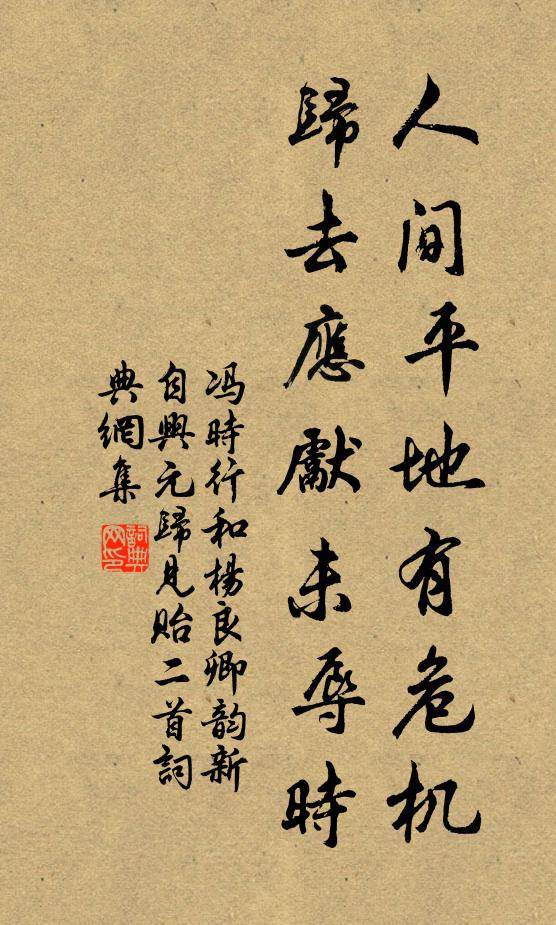 人間平地有危机
歸去應獻未辱時
冯時行和楊良卿韵新
自興元歸見貽二首詞
典網集
詞典網印